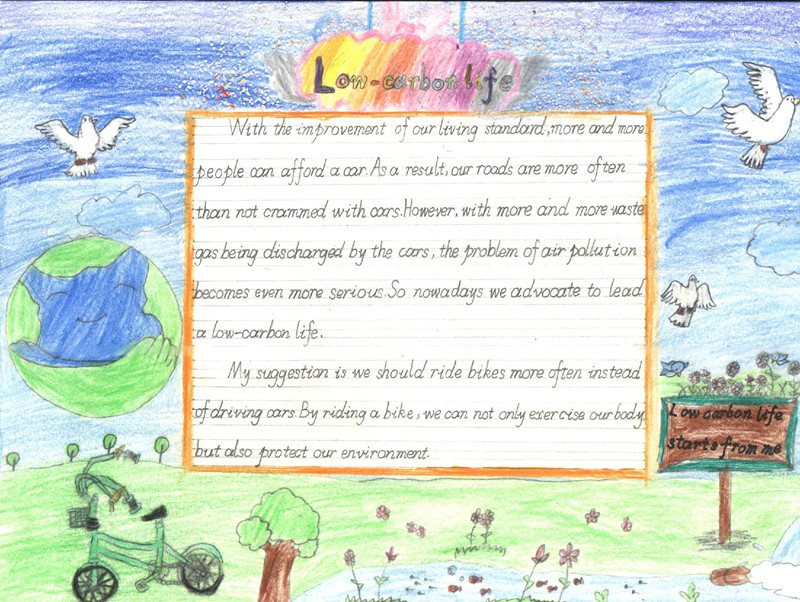 Low-carbon life
With the improvement of our living standard, more and more
people can afford a car. As a result, our roads are more often
than not crammed with cars. However, with more and more waste
gas being discharged by the cars, the problem of air pollution
becomes even more serious. So nowadays we advocate to lead
a low-carbon life.
My suggestion is we should ride bikes more often instead
of driving cars. By riding a bike, we can not only exercise our body,
but also protect our environment.
Low carbon life
starts from me